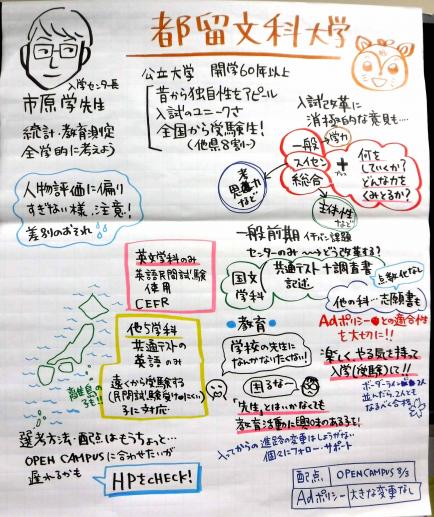 都留文科大学
入学センター長
市原学先生
統計・教育測定
全学的に考えよう
公立大学 開学60年以上
昔から独自性をアピール
入試のユニークさ
全国から受験生!
(他県8割〜)
入試改革に
消極的な意見も…
学力
一般
スイセン
総合
+
何を
していくか?
どんな力を
くみとるか?
思慮力
など
主体性
など
人物評価に偏り
すぎない様、注意!
差別のおそれ
一般前期 イチバン課題
センターのみ〜→どう改革する?
国文
学科
共通テスト+調査書
記述
点数化なし
他の科…志願書も
Adポリシーとの適合性
も大切に!!
楽しく、やる気を持って
入学(受験)して!!
ボーダーライン 2人
並んだら、2人とも
なるべく合格
英文学科のみ
英語民間試験
使用
CEFR
他5学科
共通テストの
英語のみ
遠くから受験する
(民間試験受けにくい)
子に対応
離島の
子も!!
教育
学校の先生に
なんかなりたくない!
困るな〜
「先生」とはいかなくても
教育活動に興味のある子を!
入ってからの進路の変更はしょうがない
個々にフォロー・サポート
選考方法・配点はもうちょっと…
OPEN CAMPUSに合わせたいが
遅れるかも
HPをCHECK!
配点 OPEN CAMPUS 8/3
Adポリシー 大きな変更なし